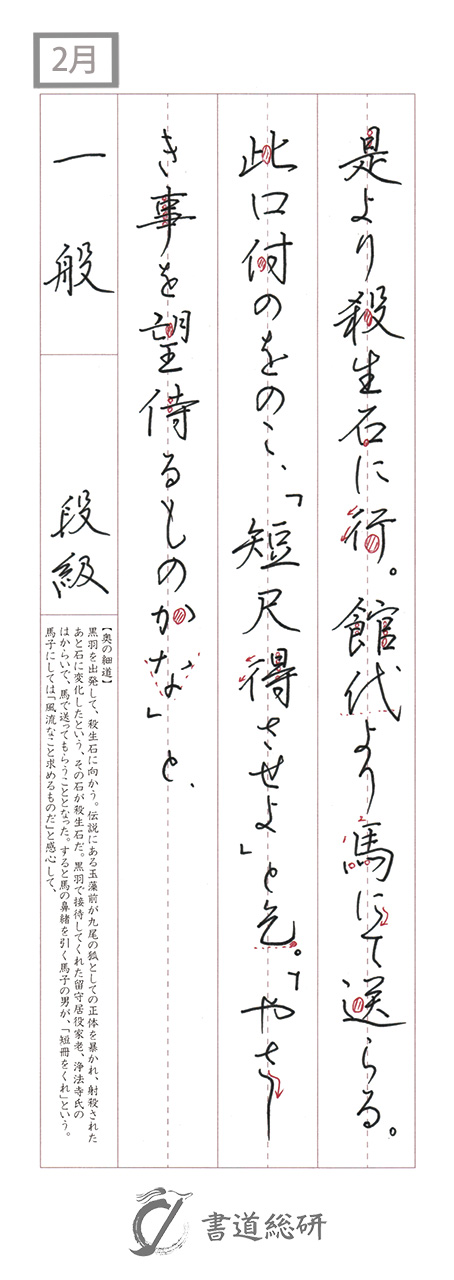 2月
是より殺生石に行。館代より馬にて送らる。
此口付のをのこ、「短尺得させよ」と乞。「やさし
き事を望侍るものかな」と、
一般
段級
【奥の細道】
黒羽を出発して、殺生石に向かう。伝説にある玉藻前が九尾の狐としての正体を暴かれ、射殺された
あと石に変化したという、その石が殺生石だ。黒羽で接待してくれた留守居役家老、浄法寺氏の
はからいで、馬で送ってもらうこととなった。すると馬の鼻緒を引く馬子の男が、「短冊をくれ」という。
馬子にしては「風流なこと求めるものだ」と感心して、
書道総研